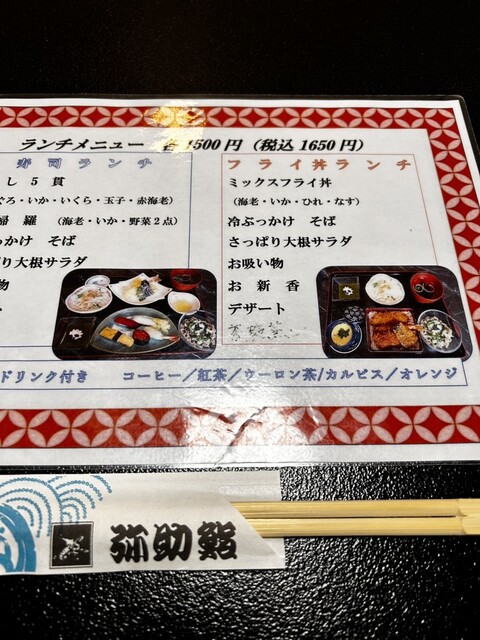 ランチメニュー 各1500円（税込 1650円）
寿司ランチ
し５貫
ぐろ・いか・いくら・玉子・赤海老）
婦羅 （海老・いか・野菜２点）
っかけ そば
ぱり大根サラダ
物
フライ丼ランチ
ミックスフライ丼
（海老・いか・ひれ・なす）
冷ぶっかけ そば
さっぱり大根サラダ
お吸い物
お新香
デザート
ドリンク付き コーヒー／紅茶／ウーロン茶/カルピス／オレンジ
弥助鮨